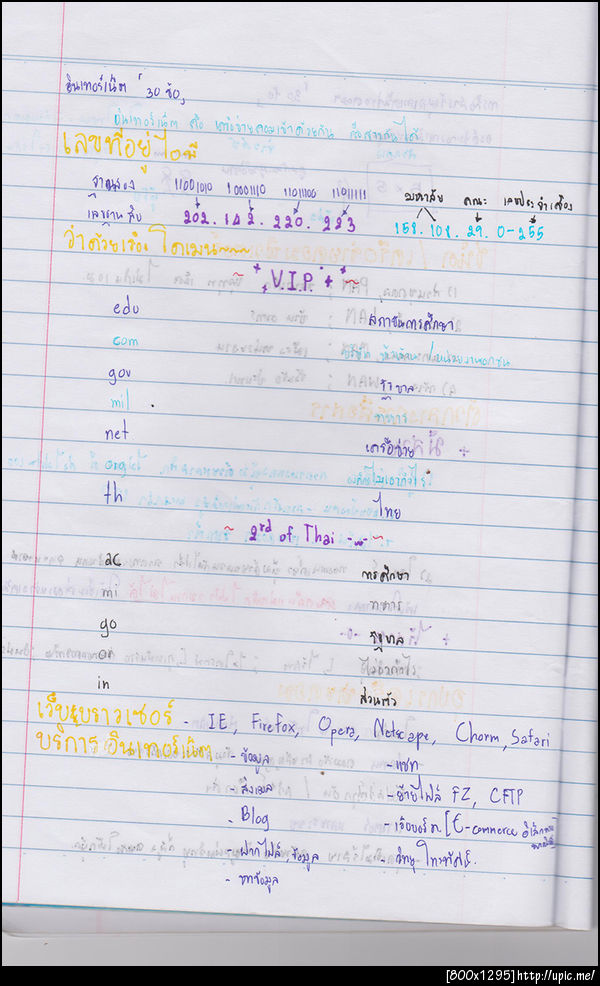 อินเทอร์เน็ต 30 ข้อ,
อินเทอร์เน็ต คือ เครือข่ายคอมเข้าด้วยกัน สื่อสารกันได้
เลขที่อยู่ไอพี
ฐานสอง 11001010 10001110 1101100 11011111 มหาลัย คณะ เลขประจำเครื่อง
เลขฐานสิบ 202.142.220.223 158.108.29.0-255
ว่าด้วยเรื่อง โดเมน~~~
V.I.P.
edu สถาบันการศึกษา
com
gov รัฐบาล
mil ทหาร
net เครือข่าย
org
th ไทย
2rd of Thai -..-
ac การศึกษา
mi ทหาร
go รัฐบาล
or ไม่เอากำไร
in ส่วนตัว
เว็บบราวเซอร์ - IE, Firefox, Opera, Netscape, Chorm, Safari
บริการอินเทอร์เน็ต
- ข้อมูล - แชท
- ส่งเมล - ย้ายไฟล์ FZ, CFTP
- Blog - เว็บบอร์ด [E-commerce
- ฝากไฟล์, ข้อมูล - วิทยุ โทรทัศน์.
- หาข้อมูล
[800x1295] http://upic.me/